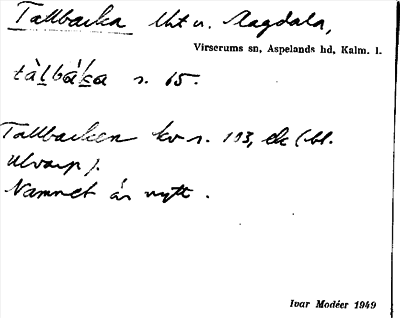 Tallbacka lht u. Magdala,
Virserums sn, Aspelands hd, Kalm. l.
tàlbáka s. 65.
Tallbacken kv s. 193, ek (bl.
Ulvarp).
Namnet är nytt.
Ivar Modéer 1949